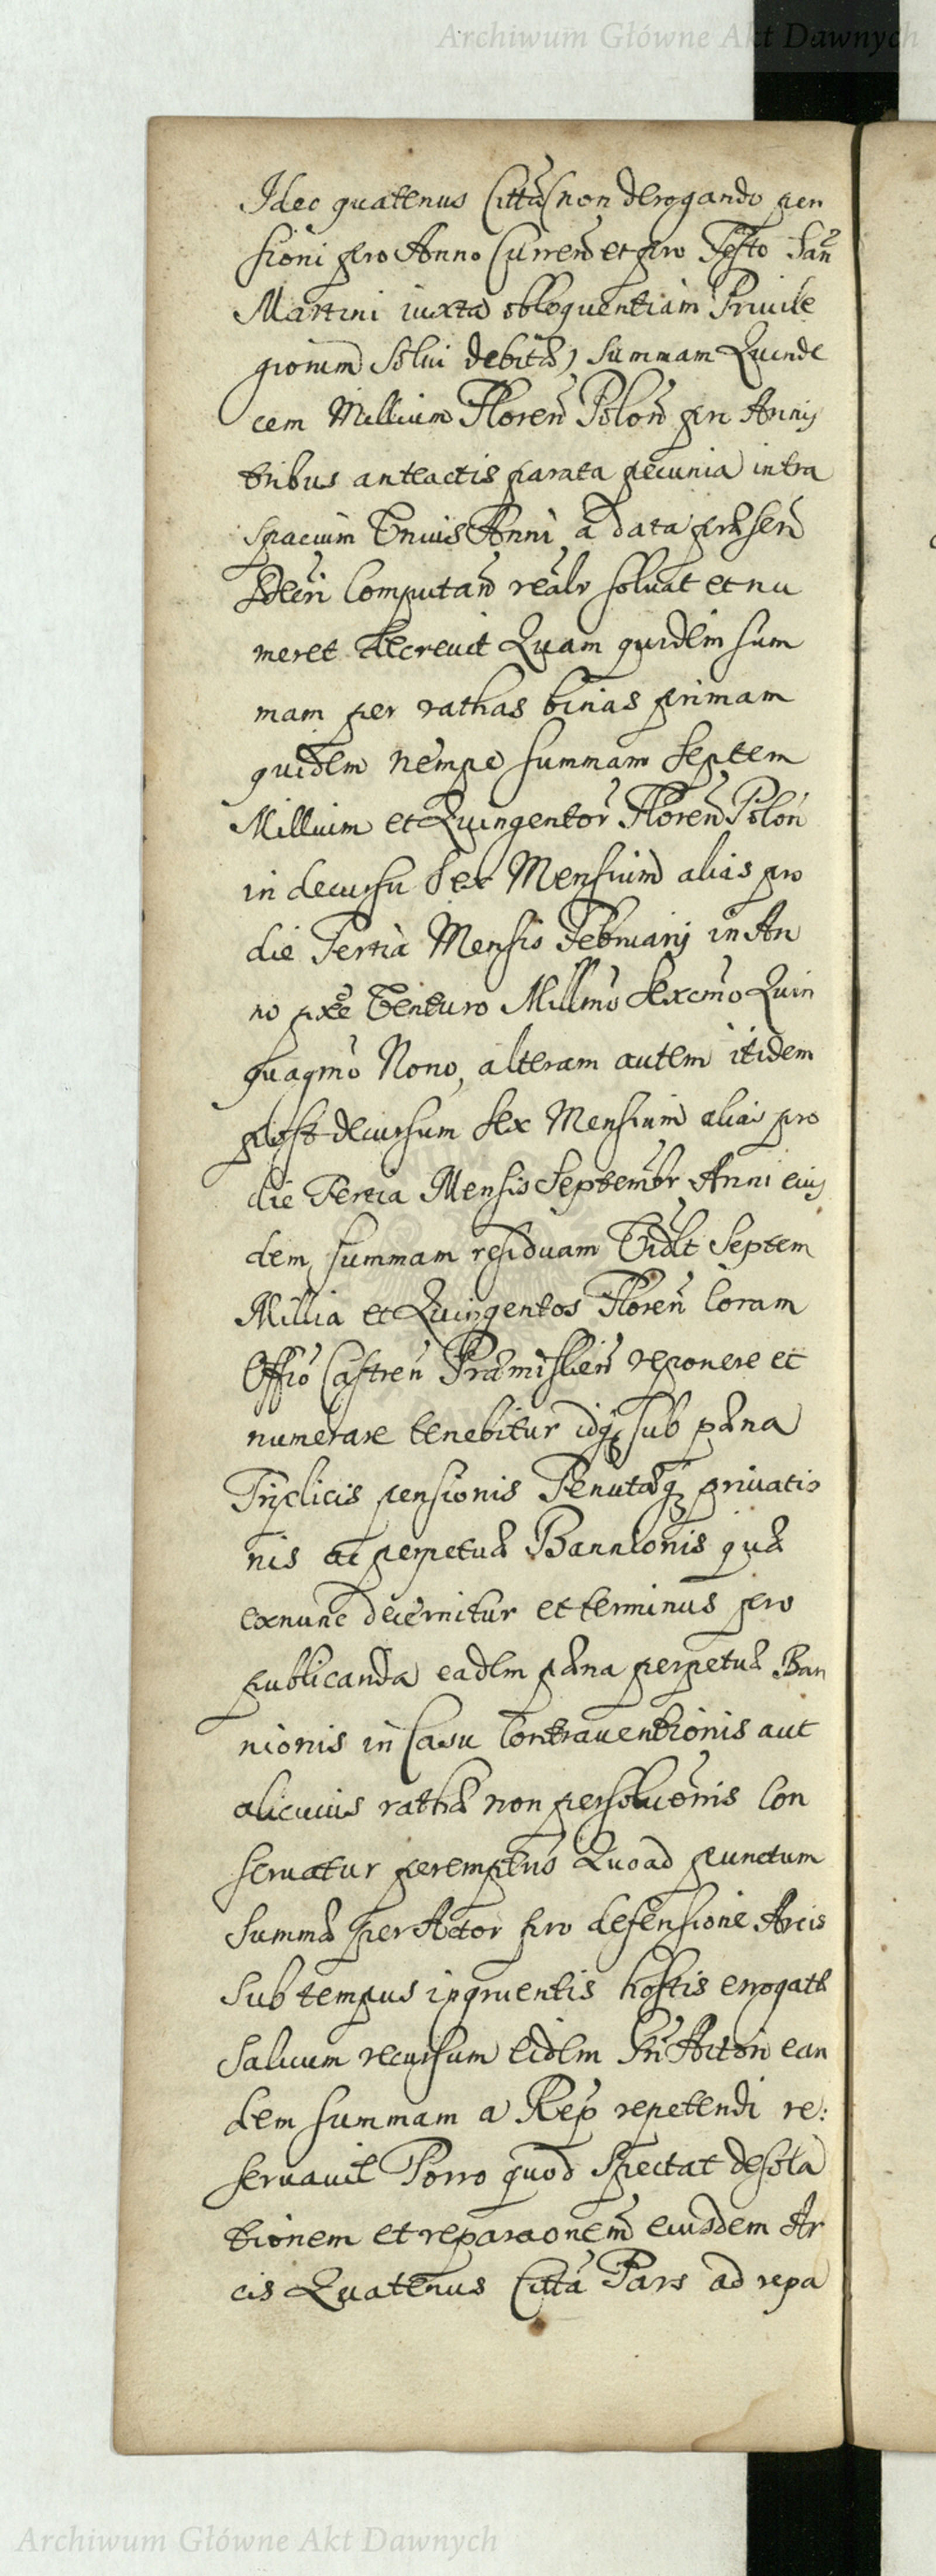 Archiwum Główne Akt Dawnych
Ideo quatenus Citta (non derogando pen
sioni pro Anno Curren et pro Festo San
Martini iuxta obloquentiam Privile
giorum solui debitæ) summam Quinde
cem Millium Floren Polon pro Annis
tribus anteactis parata pecunia intra
spacium Vnius Anni a data præsen
Decri Computan realr soluat et nu
meret decreuit Quam quidem sum
mam per rathas binas primam
quidem nempe summam septem
Millium et Quingentor Floren Polon
in decursu sex Mensium alias pro
die Tertia Mensis Februarij in An
no pxe Venturo Millmo Sexcmo Quin
quagmo Nono, alteram autem itidem
post decursum sex Mensium alias pro
die Tertia Mensis Septembr Anni eius
dem, summam residuam Vidlt Septem
Millia et Quingentos Floren Coram
Offio Castren Præmislien reponere et
numerare tenebitur idq sub pæna
Triplicis pensionis Tenutæq privatio
nis ac perpetuæ Bannionis quæ
exnunc decernitur et terminus pro
publicanda eadem pæna perpetuæ Ban
nionis in Casu Contrauentionis aut
alicuius rathæ non persoluonis Con
seruatur peremptus Quoad punctum
Summæ per Actor pro defensione Arcis
sub tempus ingruentis hostis errogatæ
saluum recursum eidem Gn Actori ean
dem summam a Rep repetendi re:
seruauit Porro quod spectat desola
tionem et reparaonem eiusdem Ar
cis Quatenus Citta Pars ad repa
Archiwum Główne Akt Dawnych